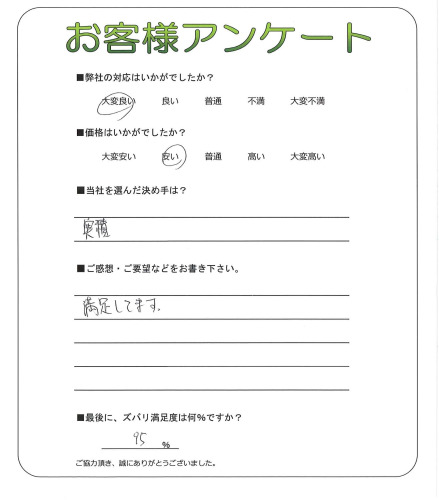 お客様アンケート
■弊社の対応はいかがでしたか？
大変良い 良い 普通 不満 大変不満
■価格はいかがでしたか？
大変安い 安い 普通 高い 大変高い
■当社を選んだ決め手は？
実績
■ご感想・ご要望などをお書き下さい。
満足してます。
■最後に、ズバリ満足度は何%ですか？
95 %
ご協力頂き、誠にありがとうございました。